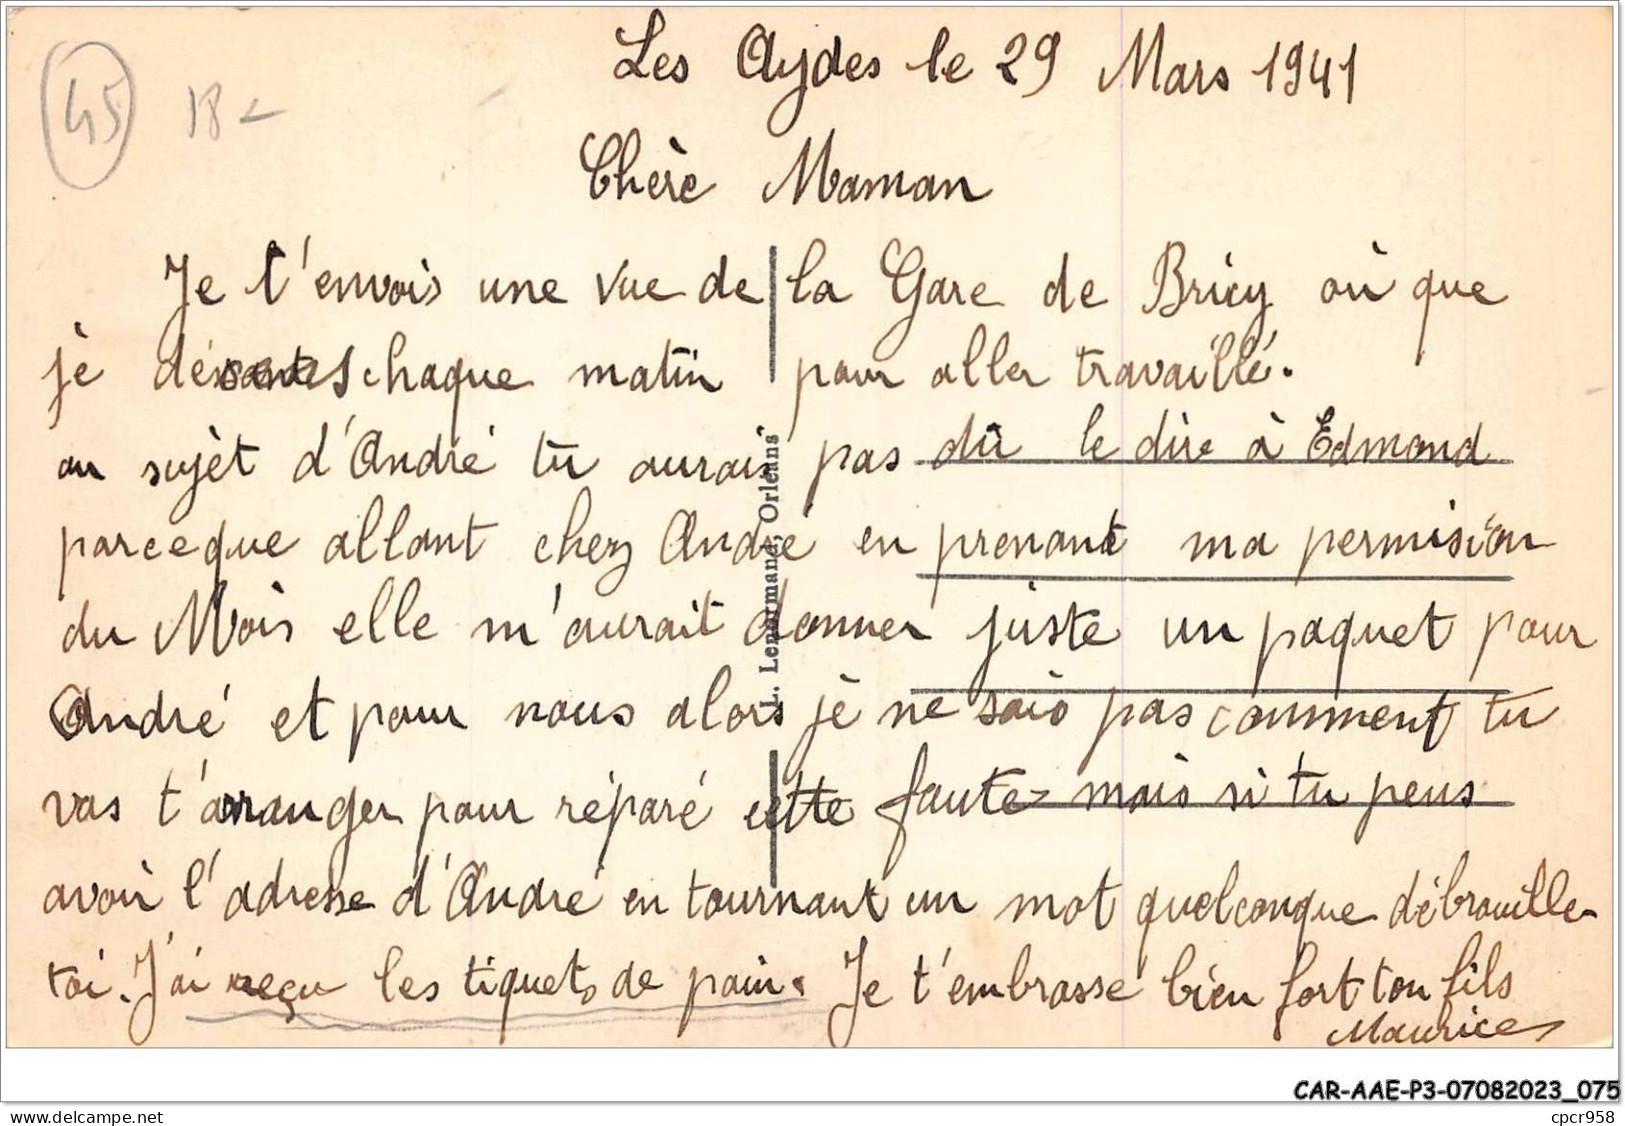 Les Aydes le 29 Mars 1941
45 18-
Chère Maman
Je t'envois une vue de la Gare de Bricy où que
je désentes chaque matin pour aller travaillé.
au sujèt d'André tu aurais pas dû le dire à Edmond
parceque allant chez André en prenant ma permision
du Mois elle m'aurait donner juste un paquet pour
André et pour nous alors jè ne sais pas comment tu
vas t'arranger pour réparé cette faute mais si tu peus
avoir l'adresse d'André en tournant un mot quelconque débrouille
toi. J'ai reçu les tiquets de pain. Je t'embrasse bien fort ton fils
Maurice
L. Lenormand, Orléans
CAR-AAE-P3-07082023_075
delcampe.net
cpcr958